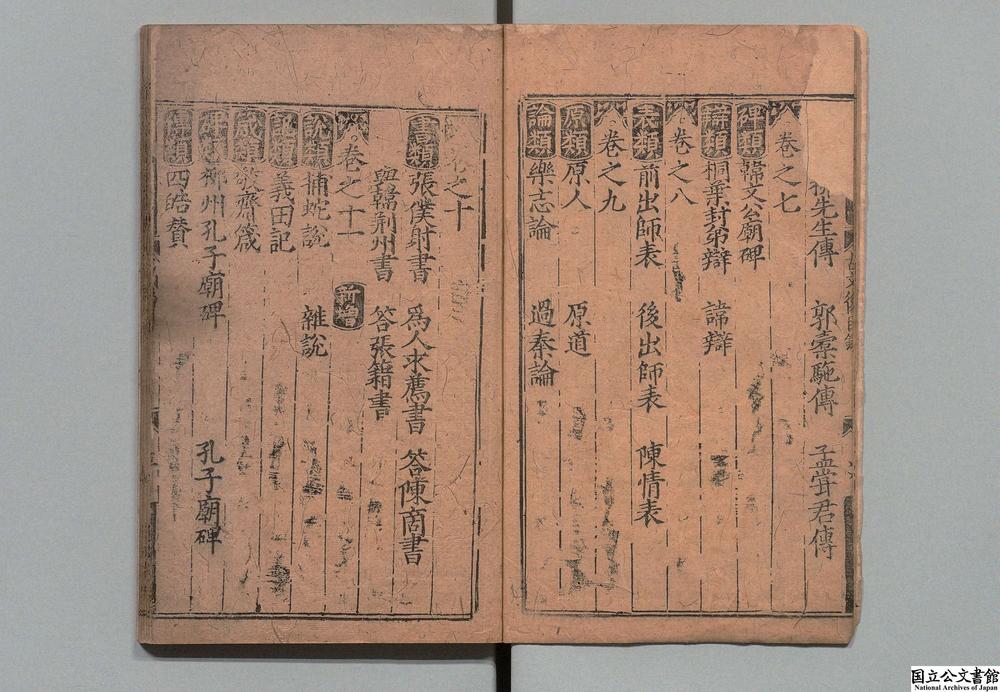 先生傳 郭橐駝傳 孟嘗君傳
卷之七
碑類 韓文公廟碑
辯類 桐葉封弟辯 諱辯
卷之八
表類 前出師表 後出師表 陳情表
卷之九
原類 原人 原道
論類 樂志論 過秦論
卷之十
書類 張僕射書 爲人求薦書 答陳商書
與韓荆州書 答張籍書
卷之十一 新增
說類 捕蛇說 雜說
記類 義田記
箴類 敬齋箴
碑類 柳州孔子廟碑 孔子廟碑
類 四皓贊
国立公文書館
National Archives of Japan